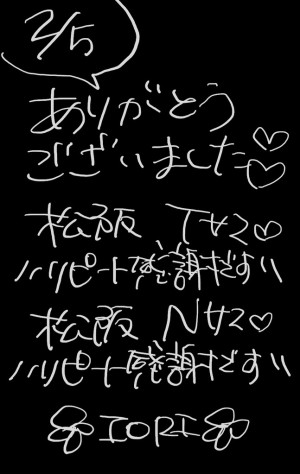 2/5
ありがとう
ございました♡♡
松阪 Tサン♡
\\リピート感謝です//
松阪 Nサン♡
\\リピート感謝です//
IORI